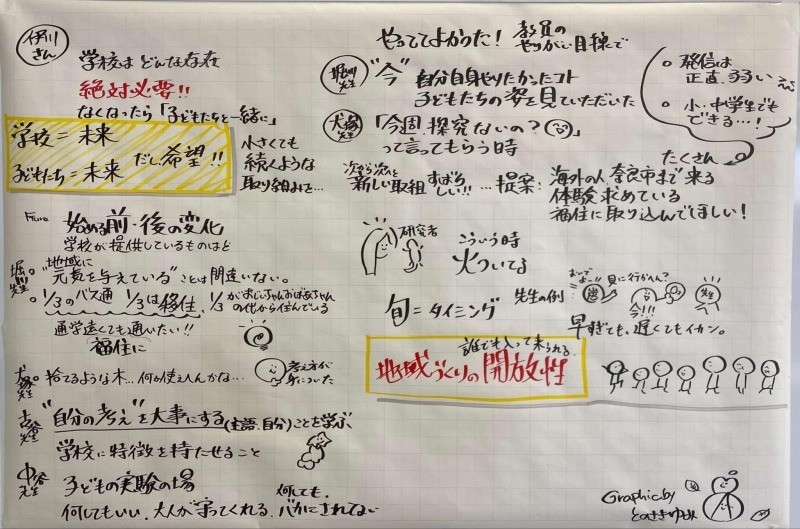 伊川さん
学校は どんな存在
絶対必要!!
なくなったら「子どもたちと一緒に」
学校=未来
子どもたち=未来 だし希望!!
小さくても
続くような
取り組みを…
始める前・後の変化
学校が提供しているものはど
堀川先生
地域に
"元気を与えている"ことは間違いない。
1/3のバス通 1/3は移住、1/3がおじいちゃんおばあちゃん
の代から住んでいる
通学遠くても通いたい!!
福住に
先生
捨てるような木…何か使えへんかな…
考え方が
身についた
古谷先生
"自分の考え"を大事にする(主語.自分)ことを学ぶ、
学校に特徴を持たせること
中谷先生
子どもの実験の場
何してもいい.大人が守ってくれる.
何しても.
バカにされてない
やっててよかった!
教員の
やりがい目線で
堀川先生
"今"自分自身やりたかったコト
子どもたちの姿を見ていただいた
犬塚先生
「今週、探究ないの?」
って言ってもらう時
発信は
正直、うるうる
小・中学生でも
できる…!
次から次へと
新しい取組 すばらしい!!…提案:
たくさん
海外の人 奈良市まで来る
体験求めている
福住に取り込んでほしい!
研究者
こういう時
火ついてる
旬=タイミング
先生の例:
おいでよー!!
貝に行かへん?
今!!!
先生
早すぎても、遅くてもイカン。
誰でも入って来られる.
地域づくりの開放性
Graphic by